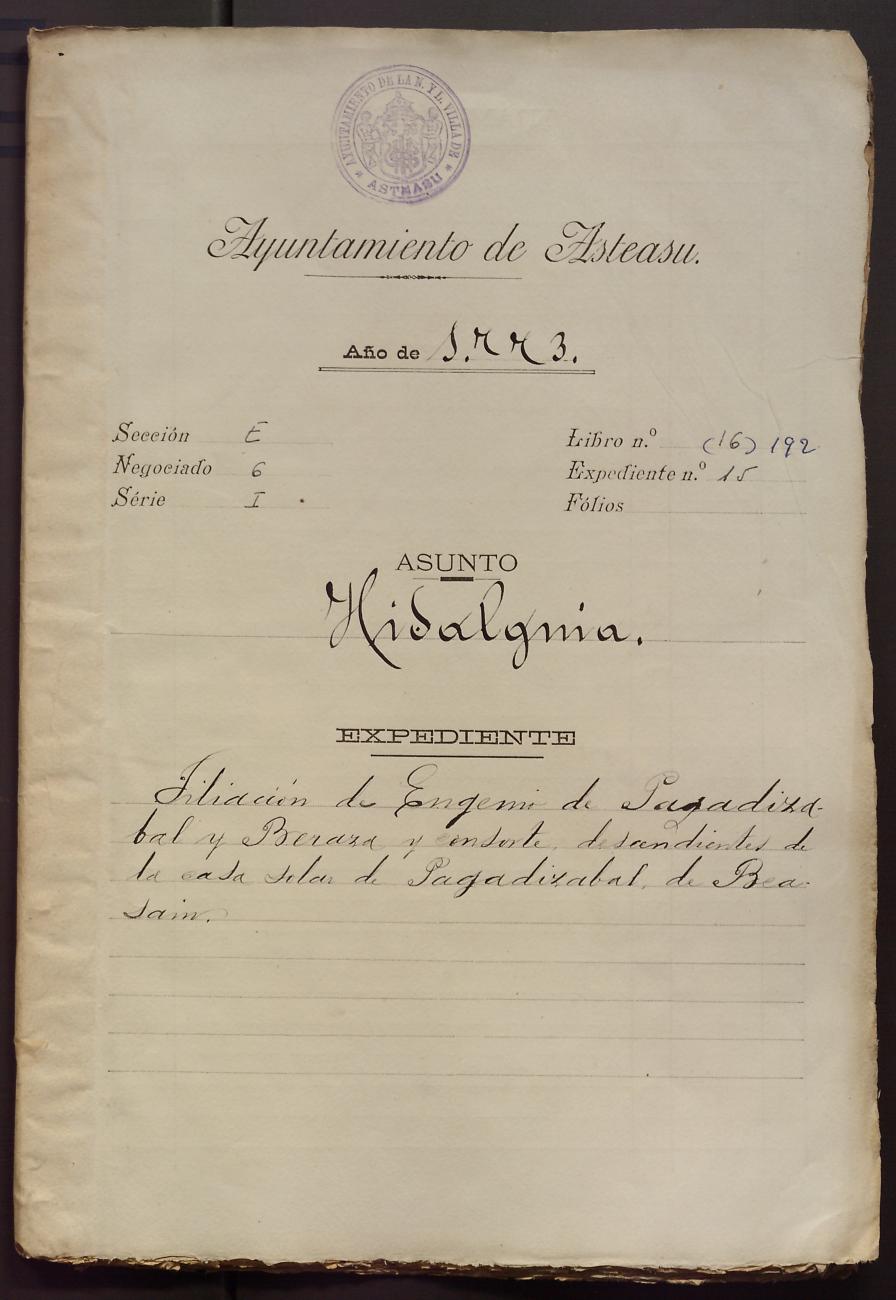 AYUNTAMIENTO DE LA N. Y L. VILLA DE
* ASTEASU *
Ayuntamiento de Asteasu.
Año de 1.773.
Sección E
Negociado 6
Série I
Libro n.º (16) 192
Expediente n.º 15
Fólios
ASUNTO
Hidalguia.
EXPEDIENTE
Filiación de Eugenio de Pagadiza-
bal y Beraza y consorte, desandientes de
la casa solar de Pagadizabal, de Bea-
sain.